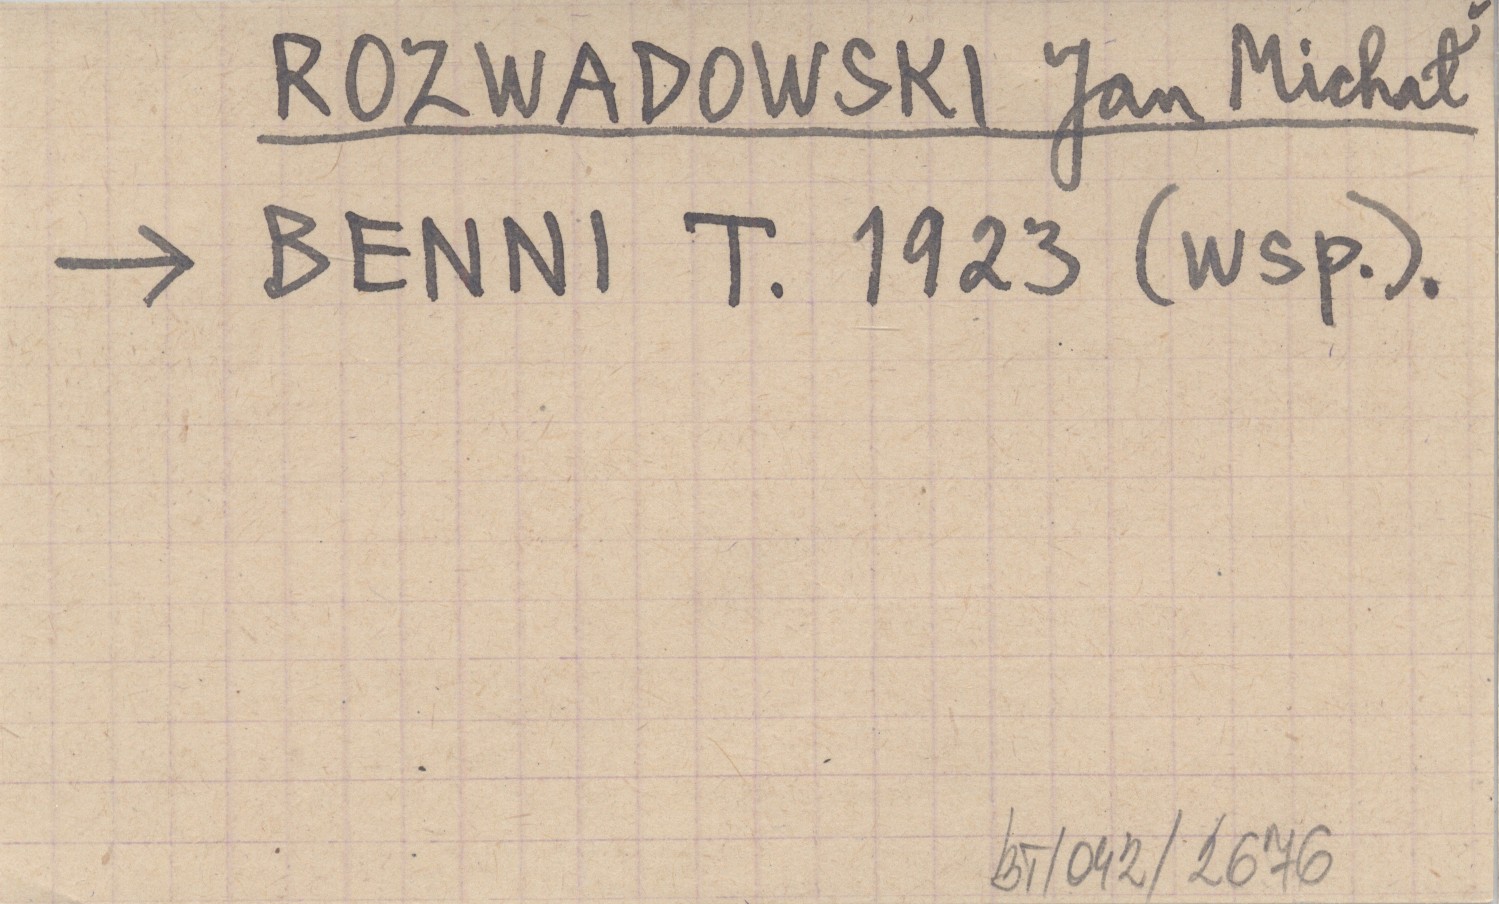 ROZWADOWSKI Jan Michał
→ BENNI T. 1923 (wsp.).
BT/042/2676